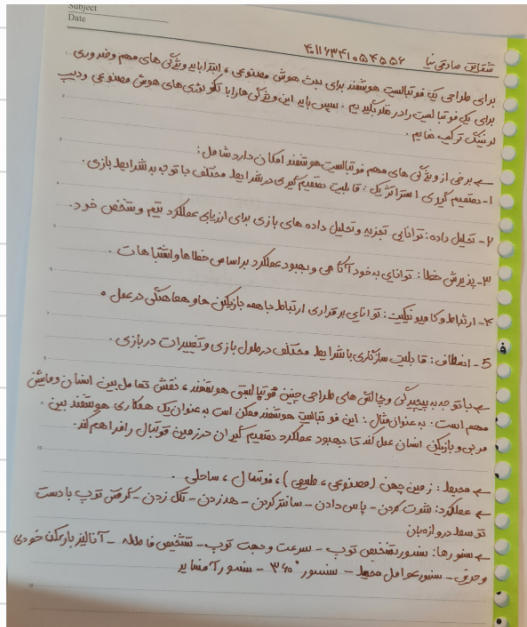 Subject
Date
شقایق صادقی نیا ۴۰۱۱۶۳۴۱۰۵۴۵۵۶
برای طراحی یک فوتبالیست هوشمند برای بحث هوش مصنوعی، ابتدا باید ویژگی های مهم و ضروری
برای یک فوتبالیست را در نظر بگیریم. سپس باید این ویژگی ها را با تکنولوژی های هوش مصنوعی و دیپ
لرنینگ ترکیب نماییم.
برخی از ویژگی های مهم فوتبالیست هوشمند امکان دارد شامل:
۱- تصمیم گیری استراتژیک: قابلیت تصمیم گیری در شرایط مختلف با توجه به شرایط بازی.
۲- تحلیل داده: توانایی تجزیه و تحلیل داده های بازی برای ارزیابی عملکرد تیم و شخص خود.
۳- پذیرش خطا: توانایی به خود آگاهی و بهبود عملکرد بر اساس خطاها و اشتباهات.
۴- ارتباط و کامیونیکیت: توانایی برقراری ارتباط با همه بازیکن ها و هماهنگی در عمل.
5- انعطاف: قابلیت سازگاری با شرایط مختلف در طول بازی و تغییرات در بازی.
با توجه به پیچیدگی و چالش های طراحی چنین فوتبالیستی هوشمند، نقش تعامل بین انسان و ماشین
مهم است. به عنوان مثال: این فوتبالیست هوشمند ممکن است به عنوان یک همکاری هوشمند بین
مربی و بازیکن انسان عمل کند تا بهبود عملکرد تصمیم گیران در زمین فوتبال را فراهم کند.
محیط: زمین چمن (مصنوعی، طبیعی)، فوتسال، ساحلی.
عملکرد: شوت کردن - پاس دادن - سانتر کردن - هد زدن - تکل زدن - گرفتن توپ با دست
توسط دروازه بان
سنسورها: سنسور تشخیص توپ - سرعت و جهت توپ - تشخیص فاصله - آنالیز بازیکن خودی
و حریف - سنسور عوامل محیط - سنسور ۳۶۰° - سنسور